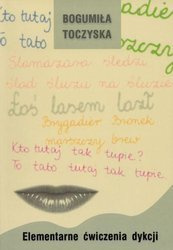 BOGUMIŁA
TOCZYSKA
gadier
To tato
Ślamazara śledzi
ślad śluzu na śluzie
Łoś lasem lazł
Brygadier Bronek
marszczy brew
Kto tutaj tak tupie?
To tato tutaj tak tupie.
Elementarne ćwiczenia dykcji